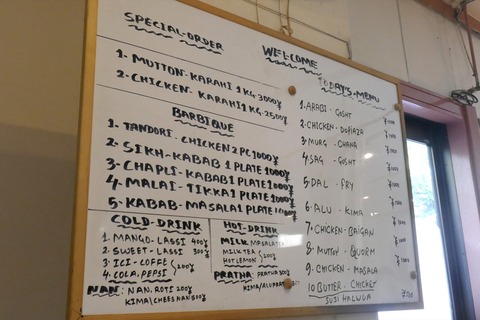 SPECIAL-ORDER
WELCOME
1- MUTTON-KARAHI 1 KG-3000¥
2- CHICKEN- KARAHI 1 KG-2500¥
BARBIQUE
1- TANDORI- CHICKEN 2 PC 1000¥
2- SIKH-KABAB 1 PLATE 1000¥
3- CHAPLI-KABAB 1 PLATE 1000¥
4- MALAI-TIKKA 1 PLATE 1000¥
5- KABAB-MASALA 1 PLATE
COLD-DRINK
1. MANGO-LASSI 400¥
2. SWEET-LASSI 300¥
3. ICI-COFFE
4. COLA,PEPSI
200¥
NAN: NAN, ROTI 200¥
KIMA/CHEES NAN 500¥
HOT-DRINK
MILK MASALA TEA
MILK TEA
HOT LEMON
200¥
PRATHA: PRATHA 300¥
TODAY'S-MENU
1. ARABI- GOSHT
2. CHICKEN- DOPIAZA
3- MURG- CHANA
4- SAG- GOSHT
5- DAL- FRY
6- ALU- KIMA
7- CHICKEN- BAIGAN
8- MUTTON- QUORM
9- CHICKEN- MASALA
10 BUTTER- CHICKEN
SUJI HALWUA